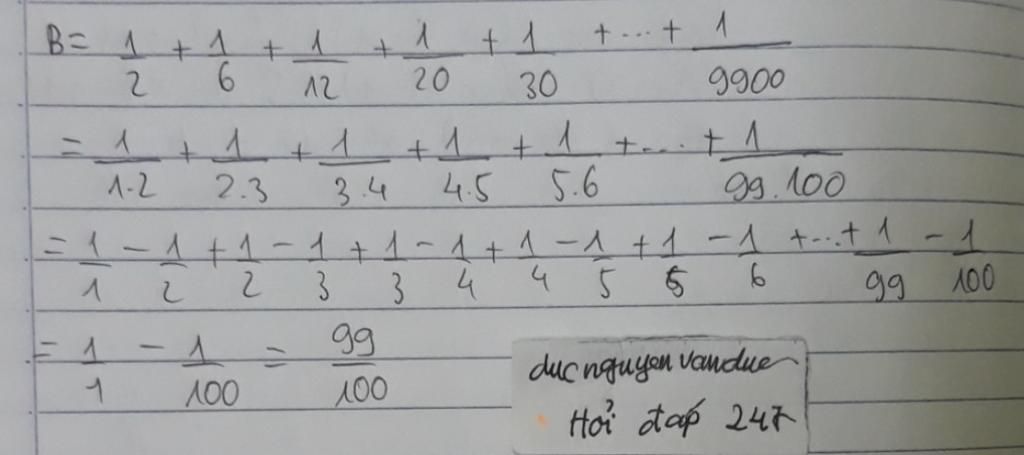 B = 1/2 + 1/6 + 1/12 + 1/20 + 1/30 + ... + 1/9900
= 1/1.2 + 1/2.3 + 1/3.4 + 1/4.5 + 1/5.6 + ... + 1/99.100
= 1/1 - 1/2 + 1/2 - 1/3 + 1/3 - 1/4 + 1/4 - 1/5 + 1/5 - 1/6 + ... + 1/99 - 1/100
= 1/1 - 1/100 = 99/100
ducnguyenvanduc
Hỏi đáp 247